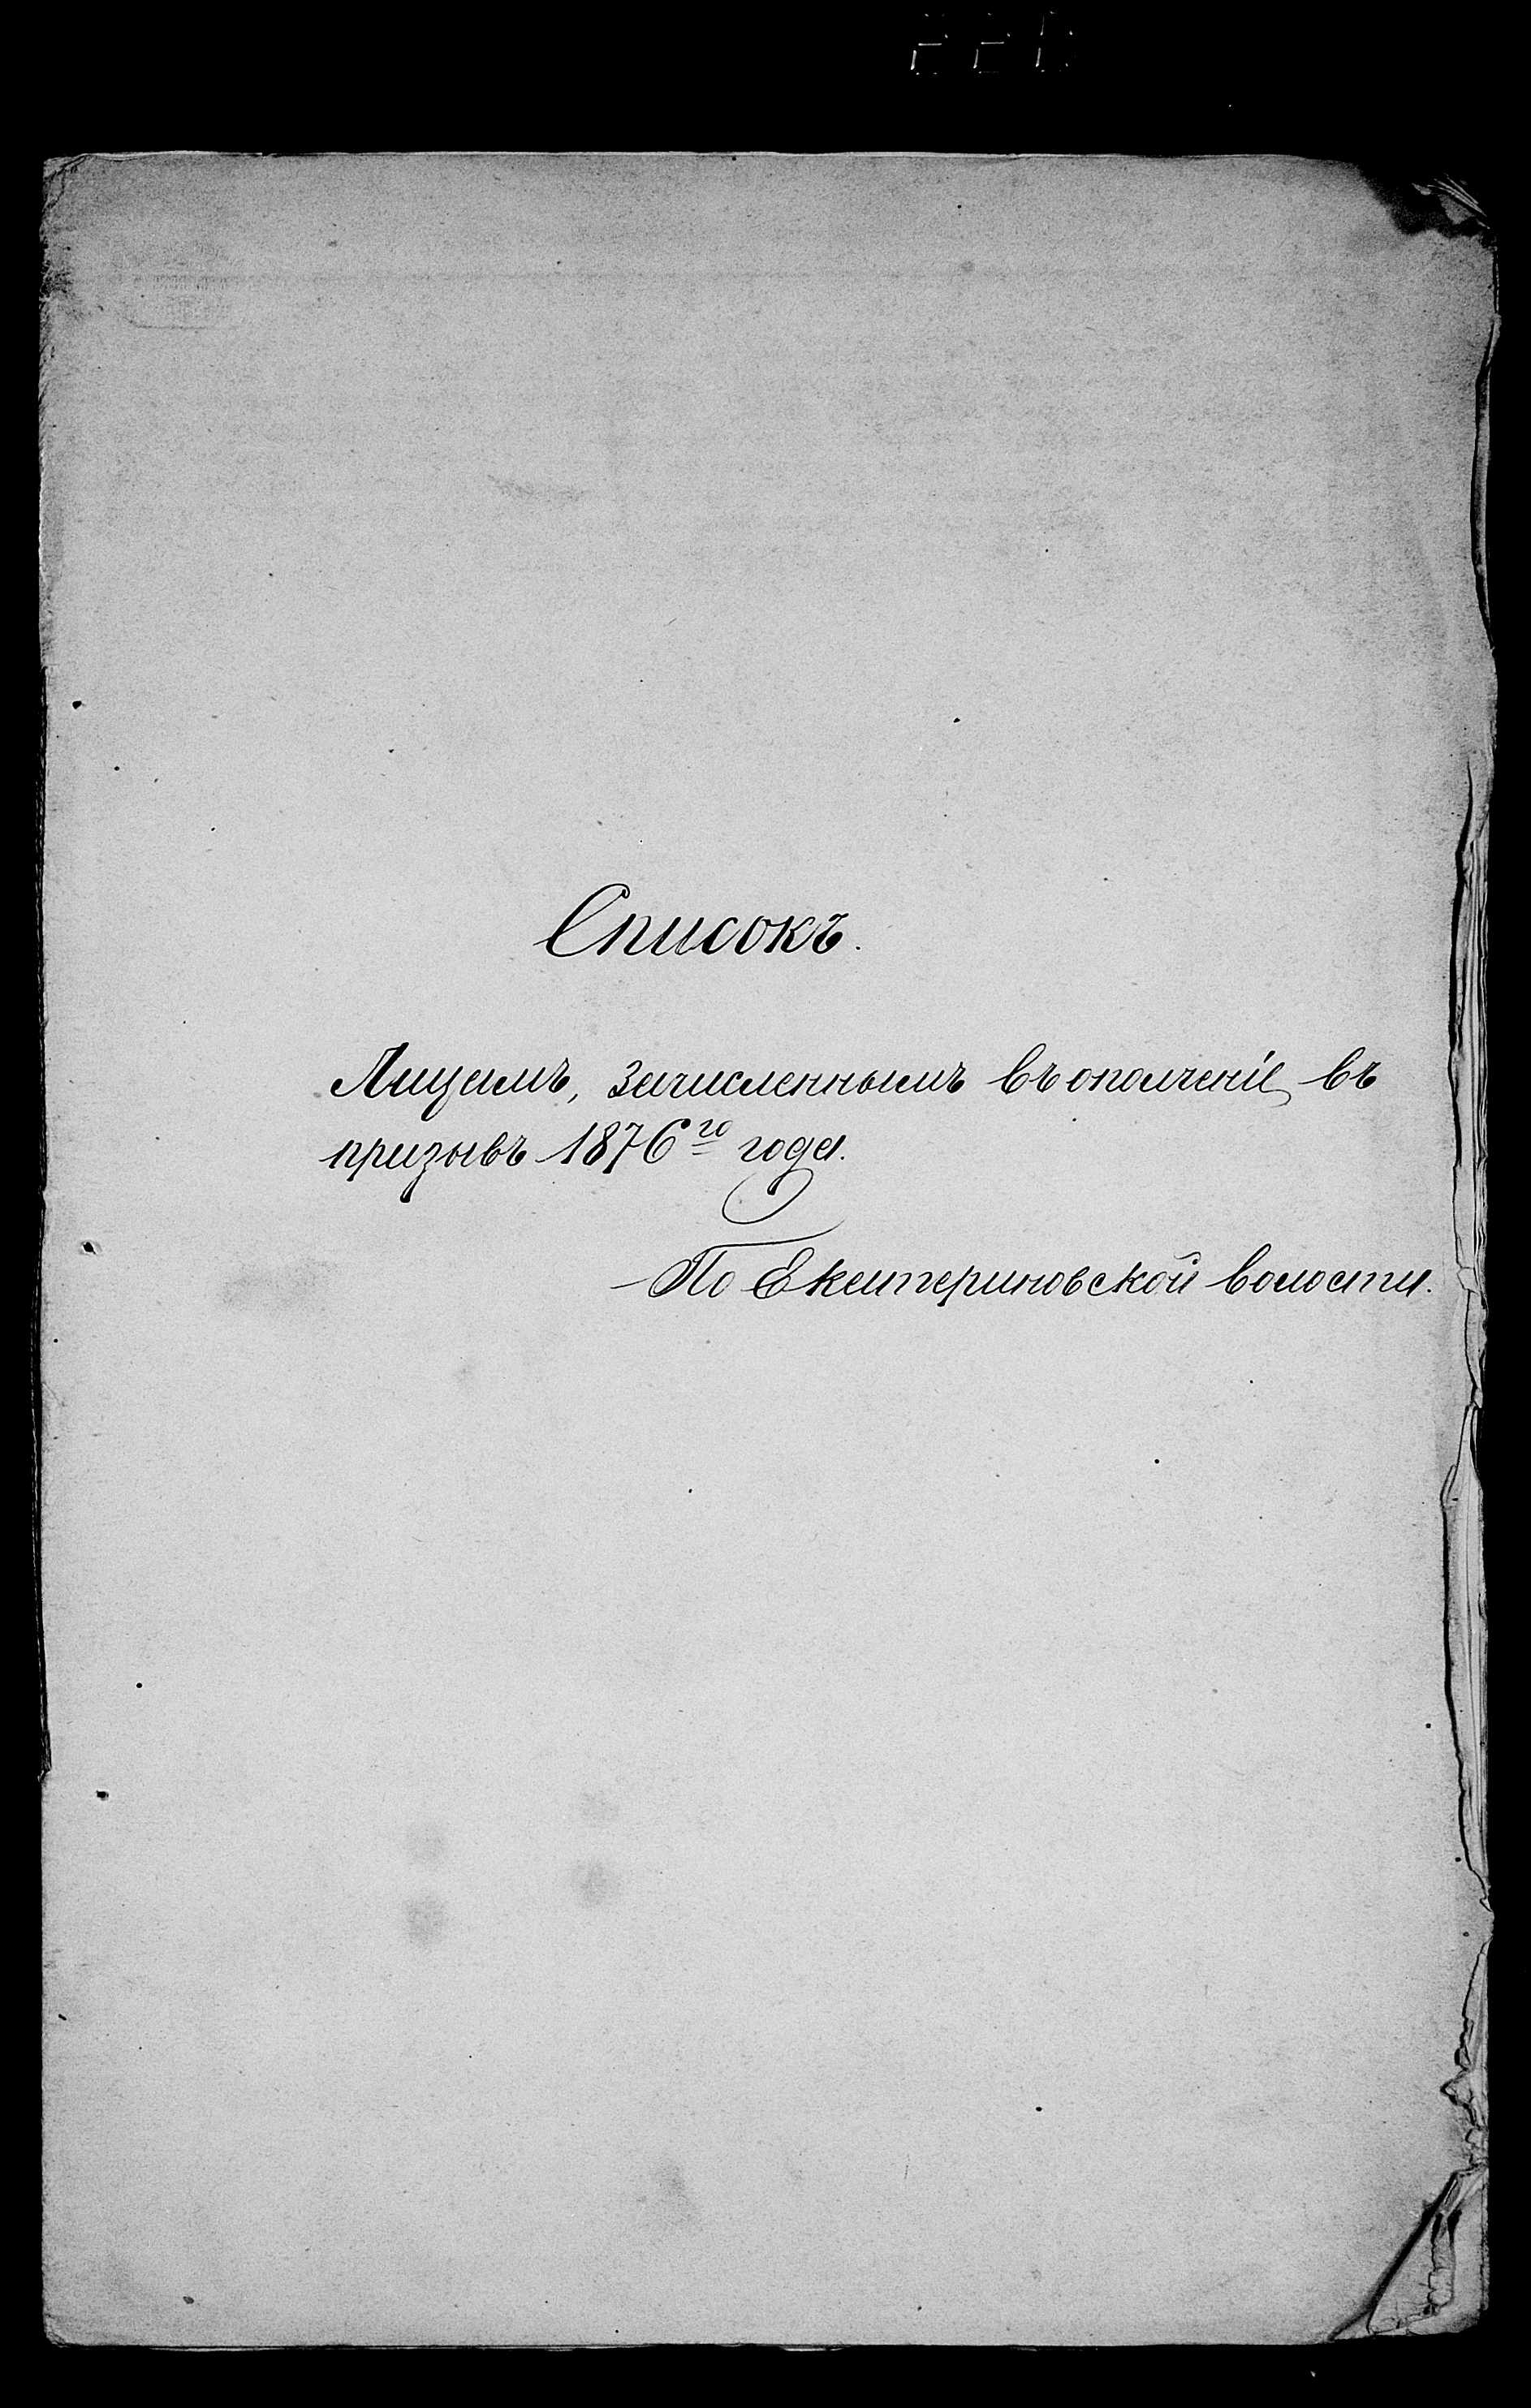 Списокъ.
Лицамъ, зачисленнымъ въ ополченіе въ
призывъ 1876го года.
По Екатериновской волости.